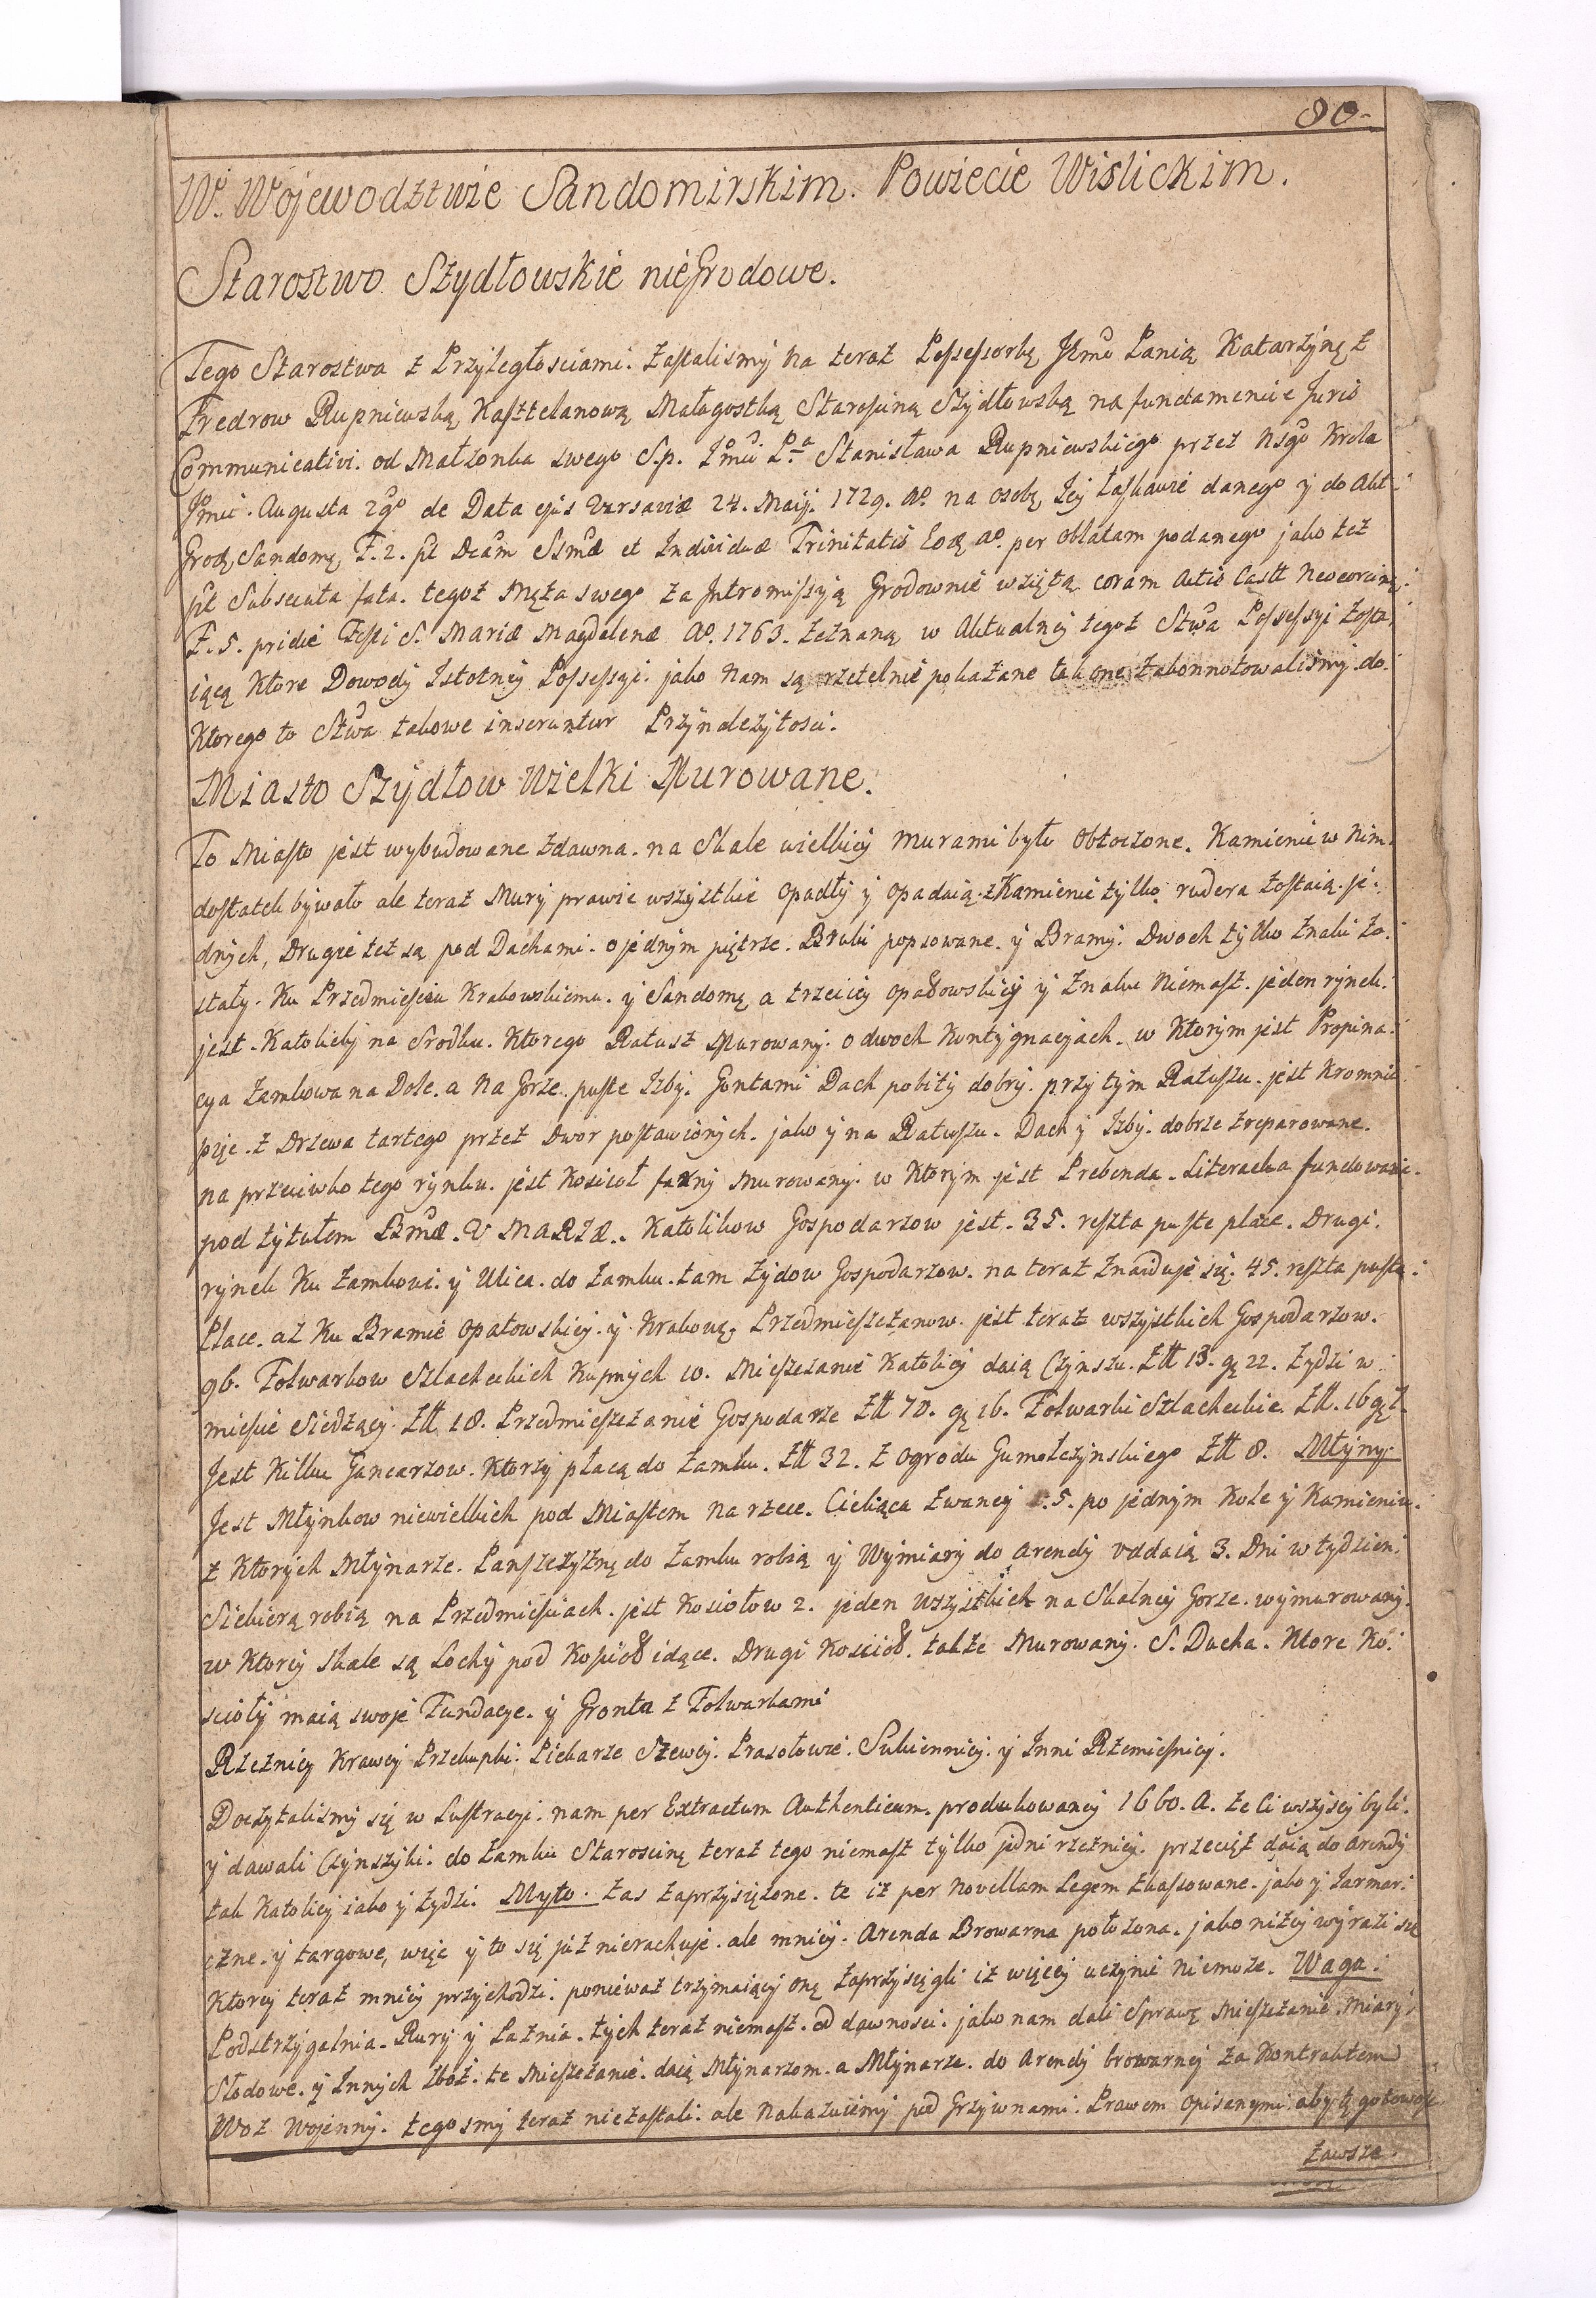 80.
W. Wojewodztwie Sandomirskim. Powiecie Wislickim.
Starostwo Szydłowskie nieGrodowe.
Tego Starostwa z Przyległosciami. zastalismy na teraz Possessorkę Jmć Panią Katarzynę z
Fredrow Rupniewską Kasztelanową Małagostką Starosciną Szydłowską na fundamencie Juris
Communicativi. od Małzonka swego S.p. Jmći Pa Stanisława Rupniewskiego przez Nsgo Krola
Jmci. Augusta 2go de Data ejus Varsaviæ 24. Maij. 1729. Ao. na osobę Jey łaskawie danego y do Akt
Grod, Sandomę F. 2. pt Dcam Ssmæ et Individuæ Trinitatis Eoq ao. per oblatam podanego jako też
pt Subsecuta fata. tegoż Męża swego za Intromissyją Grodownie wziętą coram Actis Castt Neocorcinę:
F. 5. pridie Festi S. Mariæ Magdalenæ Ao. 1763. zeznaną w Aktualney tegoż Stwa Possessyi zosta,
iącą Ktore Dowody Istotney Possessyi. jako nam są rzetelnie pokazane tak one zakonnotowalismy. do.
Ktorego to Stwa takowe inseruntur Przynalezytosci.
Miasto Szydłow Wielki Murowane.
To Miasto jest wybudowane zdawna. na Skale wielkiey murami było Obtoczone. Kamienic w nim.
dostatek bywało ale teraz Mury prawie wszystkie opadły y opadaią. z Kamienic tylko rudera zostaią. je:
dnych, Drugie też są pod Dachami. o jednym piętrze. Bruki popsowane. y Bramy. Dwoch tylko znaki zo.
stały. Ku Przedmiesciu Krakowskiemu. y Sandomę a trzeciey opatowskiey y znaku niemasz. jeden rynek.
jest. Katolicki na Srodku. Ktorego Ratusz Murowany. o dwoch Kontygnacyach. w Ktorym jest Propina.
cya Zamkowa na Dole. a na Gorze. puste Izby. Gontami Dach pobity dobry. przy tym Ratuszu. jest Kromnic
pięc. z Drzewa tartego przez Dwor postawionych. jako y na Ratuszu. Dach y Izby. dobrze zreparowane.
na przeciwko tego rynku. jest Kosicoł farny murowany. w Ktorym jest Prebenda. Literacka fundowana.
pod tytułem Bmæ. V MARIæ.. Katolikow Gospodarzow jest. 35. reszta puste place. Drugi.
rynek Ku Zamkowi. y Ulica. do Zamku. tam Zydow Gospodarzow. na teraz znaiduje się. 45. reszta puste:
Place. az Ku Bramie opatowskiey. y. Krakową. Przedmieszczanow. jest teraz wszystkich Gospodarzow.
96. Folwarkow Szlacheckich Kupnych 10. Mieszczanie Katolicy daią Czynszu. Złł 13. gę 22. Zydzi w.
miescie Siedzący. Złł 18. Przedmieszczanie Gospodarze Złł 70. gę 16. Folwarki Szlacheckie. Złł. 16 gę 7.
Jest Kilku Gancarzow. Ktorzy płacą do Zamku. Złł 32. z Ogrodu Gumołczynskiego Złł 8. Młyny.
Jest Młynkow niewielkich pod Miastem na rzece. Ciekąca zwaney .5. po jednym Kole y Kamieniu.
z Ktorych Młynarze. Panszczyznę do Zamku robią y Wymiary do Arendy oddaią 3. Dni w tydzien.
Siekierą robią na Przedmiesciach. jest Kosciołow 2. jeden wszystkich na Skalney Gorze. wymurowany.
w Ktorey Skale są Lochy pod Koscioł idące. Drugi Koscioł. także Murowany. S. Ducha. Ktore Ko:
scioły maią swoje Fundacye. y Gronta z Folwarkami
Rzeznicy Krawcy Przekupki. Piekarze Szewcy. Prasołowie. Sukiennicy. y Inni Rzemiesnicy.
Doczytalismy się w Lustracyi. nam per Extractum Authenticum. produkowaney 1660. A. że Ci wszyscy byli.
y dawali Czynszyki. do Zamku Staroscinę teraz tego niemasz tylko jedni rzeznicy. przecięż daią do arendy
tak Katolicy iako y Zydzi. Myto. zas zaprzysiężone. te iz per Novellam Legem zkassowane. jako y Jarmar:
czne. y targowe, więc y to się już nierachuje. ale mniey. Arenda Browarna połozona. jako niżey wyrazi się
Ktorey teraz mniey przychodzi. poniewaz trzymaiący onę zaprzysięgli iz więcey uczynić niemoze. Waga.
Podstrzygalnia. Rury y Łaznia. tych teraz niemasz. od dawnosci. jako nam dali Sprawę Mieszczanie. Miary.
Słodowe. y Innych zboż. te Mieszczanie. daią Młynarzom. a Młynarze. do Arendy browarney za Kontraktem
Woz Wojenny. tegosmy teraz niezastali. ale nakazuiemy pod Grzywnami. Prawem opisanymi. aby tę gotowosc
zawsze.